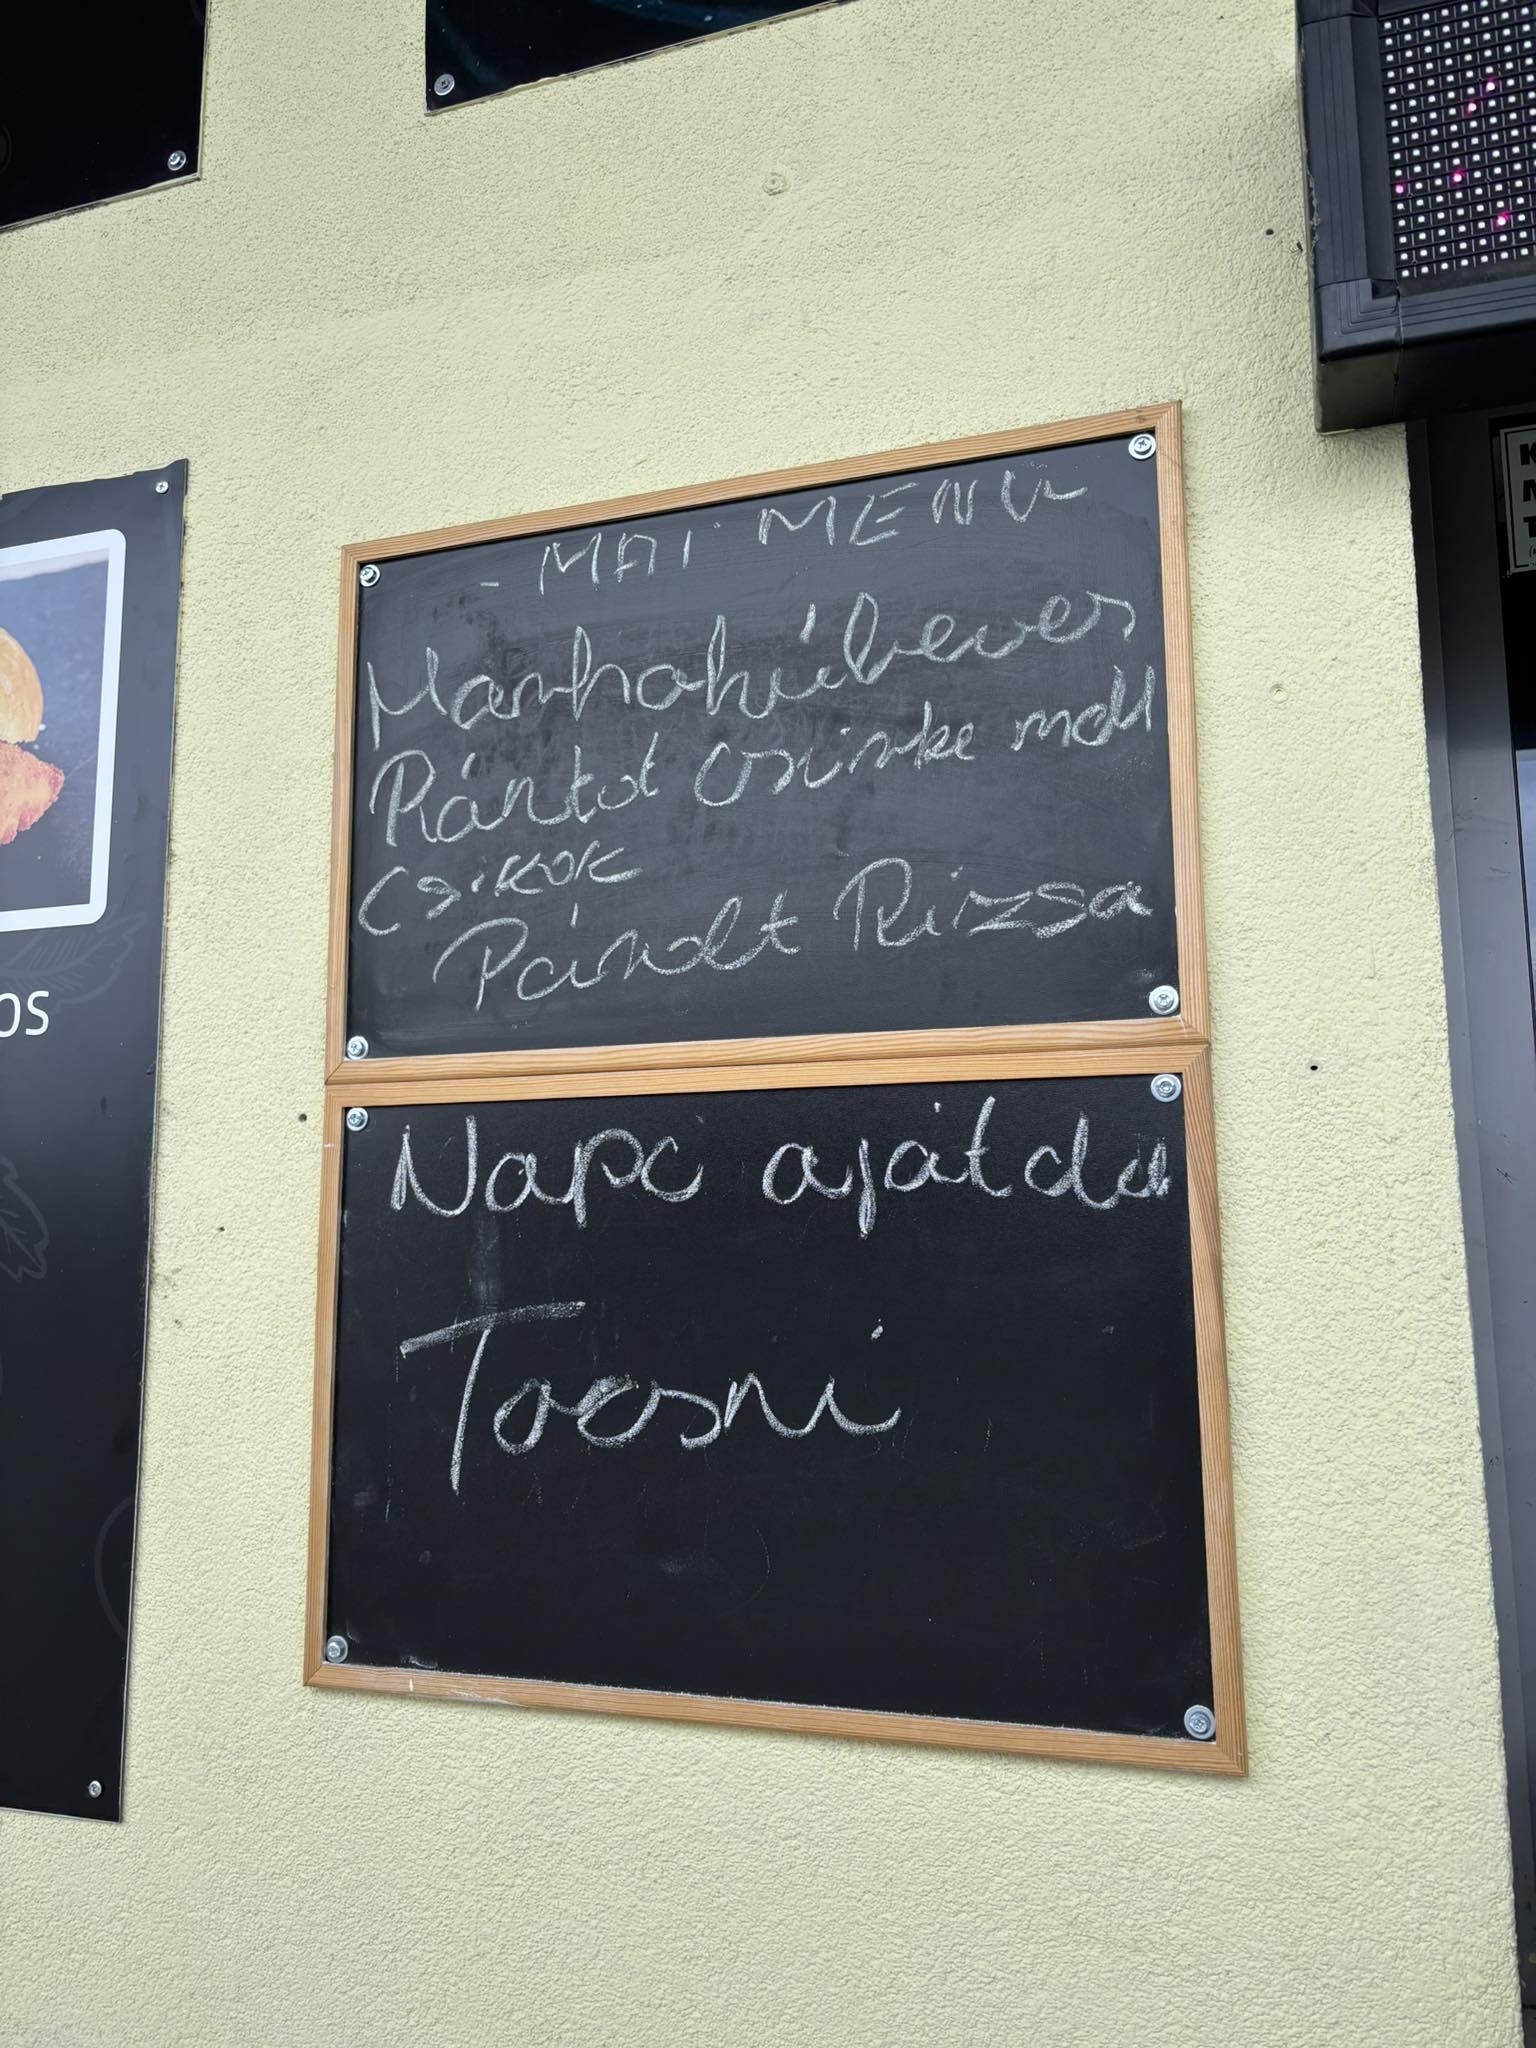 - MAI MENU
Marhahúsleves
Rántot csirke mell
Csikok
Párolt Rizsa
Napi ajátdd
Tocsni
os